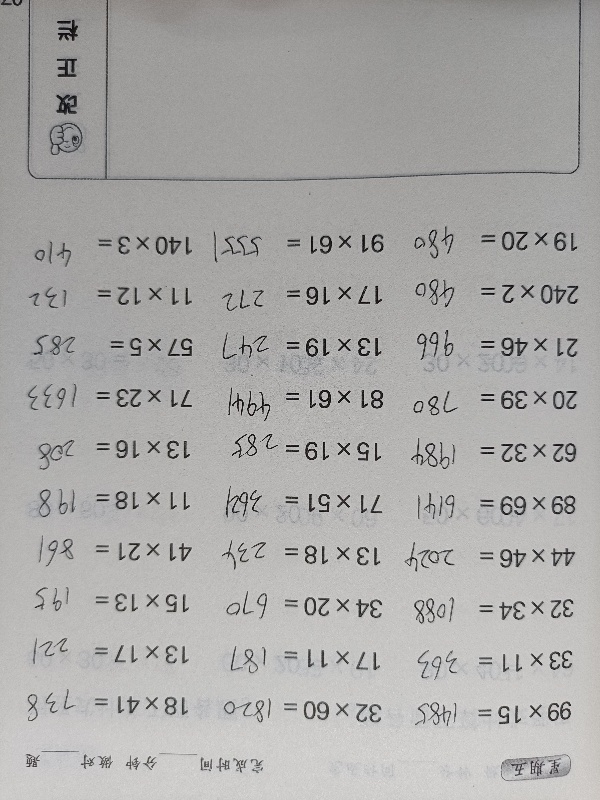 星期五 完成时间____分钟 做对____题
99×15= 1485 32×60= 1820 18×41= 738
33×11= 363 17×11= 187 13×17= 221
32×34= 1088 34×20= 670 15×13= 195
44×46= 2024 13×18= 234 41×21= 861
89×69= 6141 71×51= 3621 11×18= 198
62×32= 1984 15×19= 285 13×16= 208
20×39= 780 81×61= 4941 71×23= 1633
21×46= 966 13×19= 247 57×5= 285
240×2= 480 17×16= 272 11×12= 132
19×20= 480 91×61= 5551 140×3= 410
改正栏